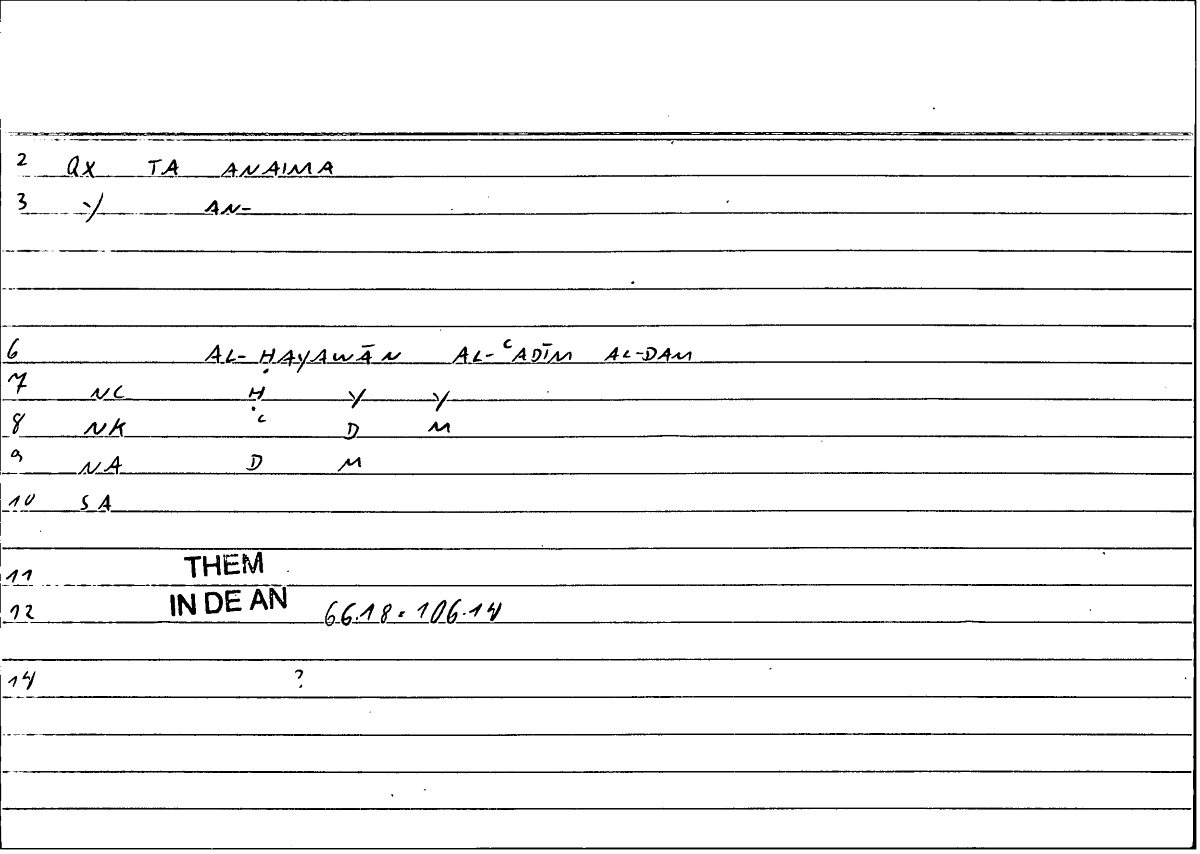 2 QX TA ANAIMA
3 Y AN-
6 AL-ḤAYAWĀN AL-ʿADĪM AL-DAM
7 NC Ḥ Y Y
8 NK ʿ D M
9 NA D M
10 SA
11 THEM
12 IN DE AN 66.18 = 106.14
14 ?